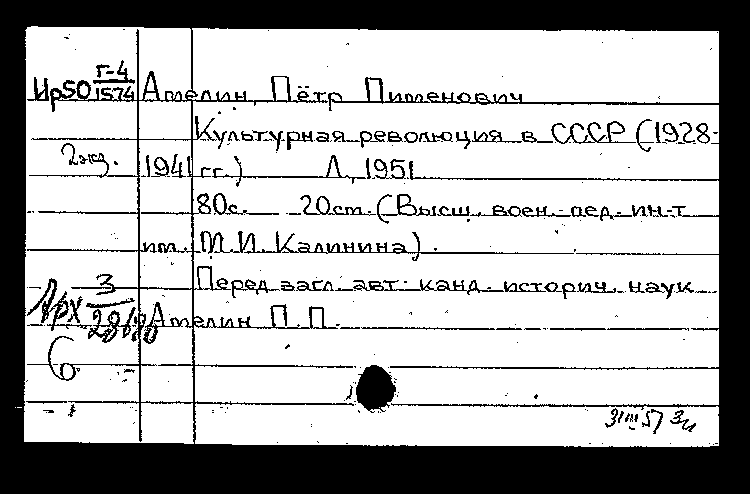 Ир50 Г-4/1574 Амелин, Пётр Пименович
Культурная революция в СССР (1928-
2 экз. 1941 гг.) Л., 1951
80с. 20см. (Высш. воен.-пед. ин-т
им. М.И. Калинина).
Перед загл. авт. канд. историч. наук
Арх 3/ Амелин П.П.
31 III 57